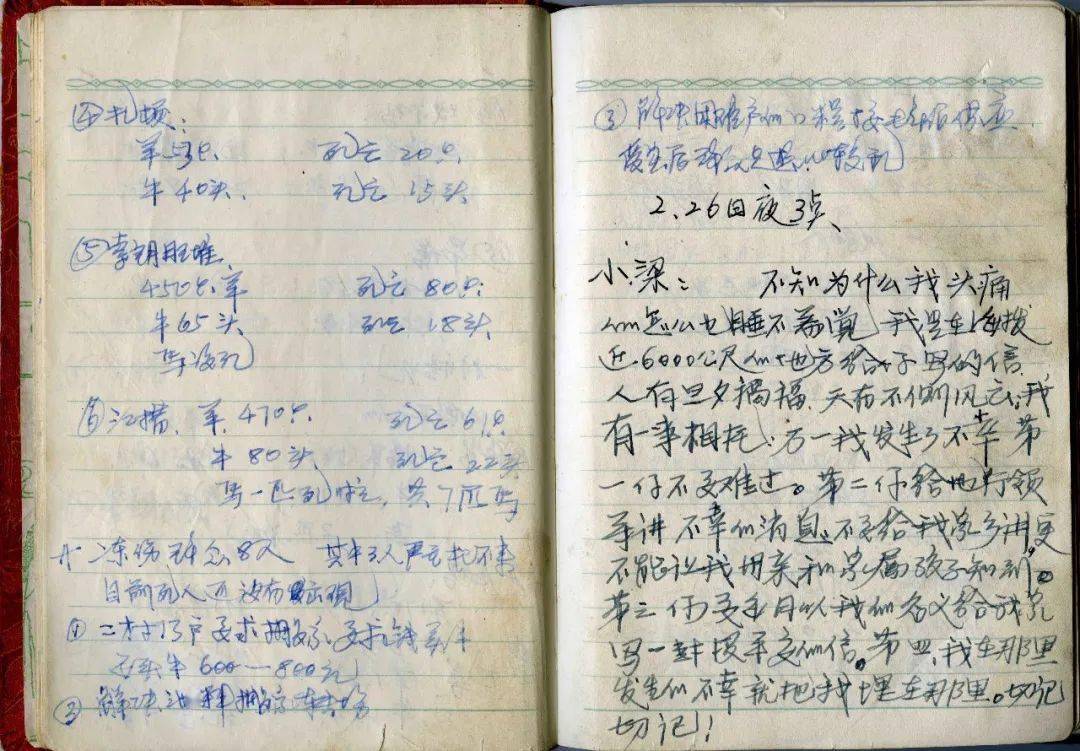 ④扎顿:
羊53只 死亡20只.
牛40头. 死亡15头
⑤旺堆.
450只羊 死亡80只.
牛65头 死亡18头
马没死
⑥江措. 羊.470只. 死亡61只
牛80头 死亡22头
马一匹死啦, 共7匹马
冻伤8人 其中3人严重
目前死人还没有出现
①二村17户要求
牛600—800元
②解决
③解决困难户的口粮
2.26日夜3点
小梁: 不知为什么我头痛
怎么也睡不着觉 我是在海拔
近6000公尺的地方给你写的信
人有旦夕祸福、天有不测风云,我
有一事相托:万一我发生了不幸 第
一你不要难过。第二你给地行领
导讲 不幸的消息。不要给我家乡讲更
不能让我母亲和家属孩子知到。
第三 你要每月以我的名义给我家
写一封报平安的信。第四、我在那里
发生的不幸就把我埋在那里。切记
切记!